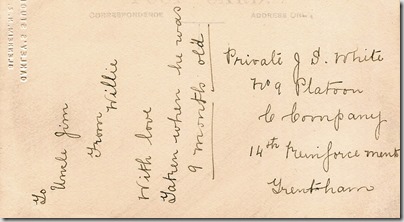 CORRESPONDENCE
ADDRESS ONLY
To
Uncle Jim
From Willie
With love
Taken when he was
9 months old
Private J D. White
No 9 Platoon
C Company
14th Reinforcements
Trentham